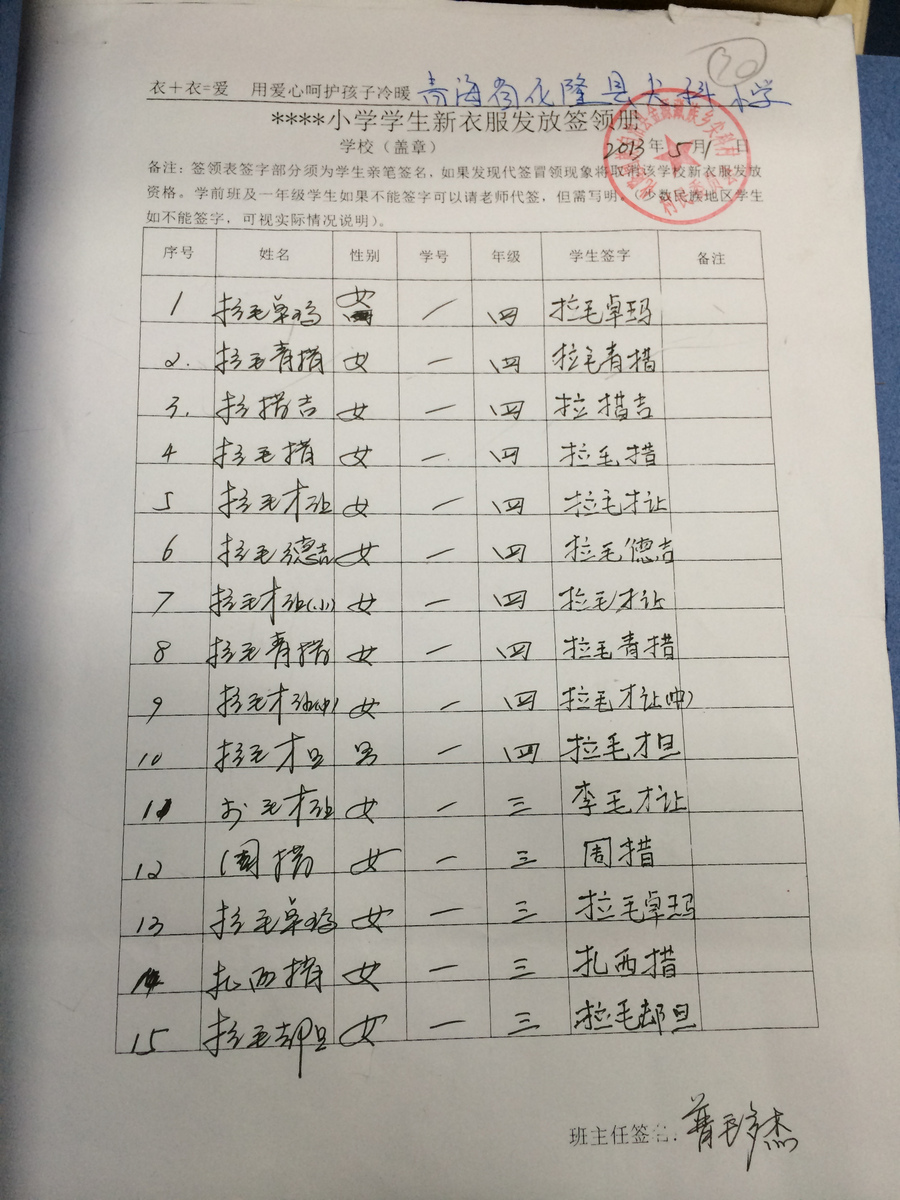 20
衣+衣=爱 用爱心呵护孩子冷暖 青海省化隆县尖科小学
****小学学生新衣服发放签领册
学校（盖章） 2013年5月1日
备注：签领表签字部分须为学生亲笔签名，如果发现代签冒领现象将取消该学校新衣服发放
资格。学前班及一年级学生如果不能签字可以请老师代签，但需写明。（少数民族地区学生
如不能签字，可视实际情况说明）。
序号 姓名 性别 学号 年级 学生签字 备注
1 拉毛卓玛 女 一 四 拉毛卓玛
2. 拉毛青措 女 一 四 拉毛青措
3. 拉措吉 女 一 四 拉措吉
4 拉毛措 女 一 四 拉毛措
5 拉毛才让 女 一 四 拉毛才让
6 拉毛德吉 女 一 四 拉毛德吉
7 拉毛才让(小) 女 一 四 拉毛才让
8 拉毛青措 女 一 四 拉毛青措
9 拉毛才让(中) 女 一 四 拉毛才让(中)
10 拉毛才旦 男 一 四 拉毛才旦
11 李毛才让 女 一 三 李毛才让
12 周措 女 一 三 周措
13 拉毛卓玛 女 一 三 拉毛卓玛
14 扎西措 女 一 三 扎西措
15 拉毛却旦 女 一 三 拉毛却旦
班主任签名: